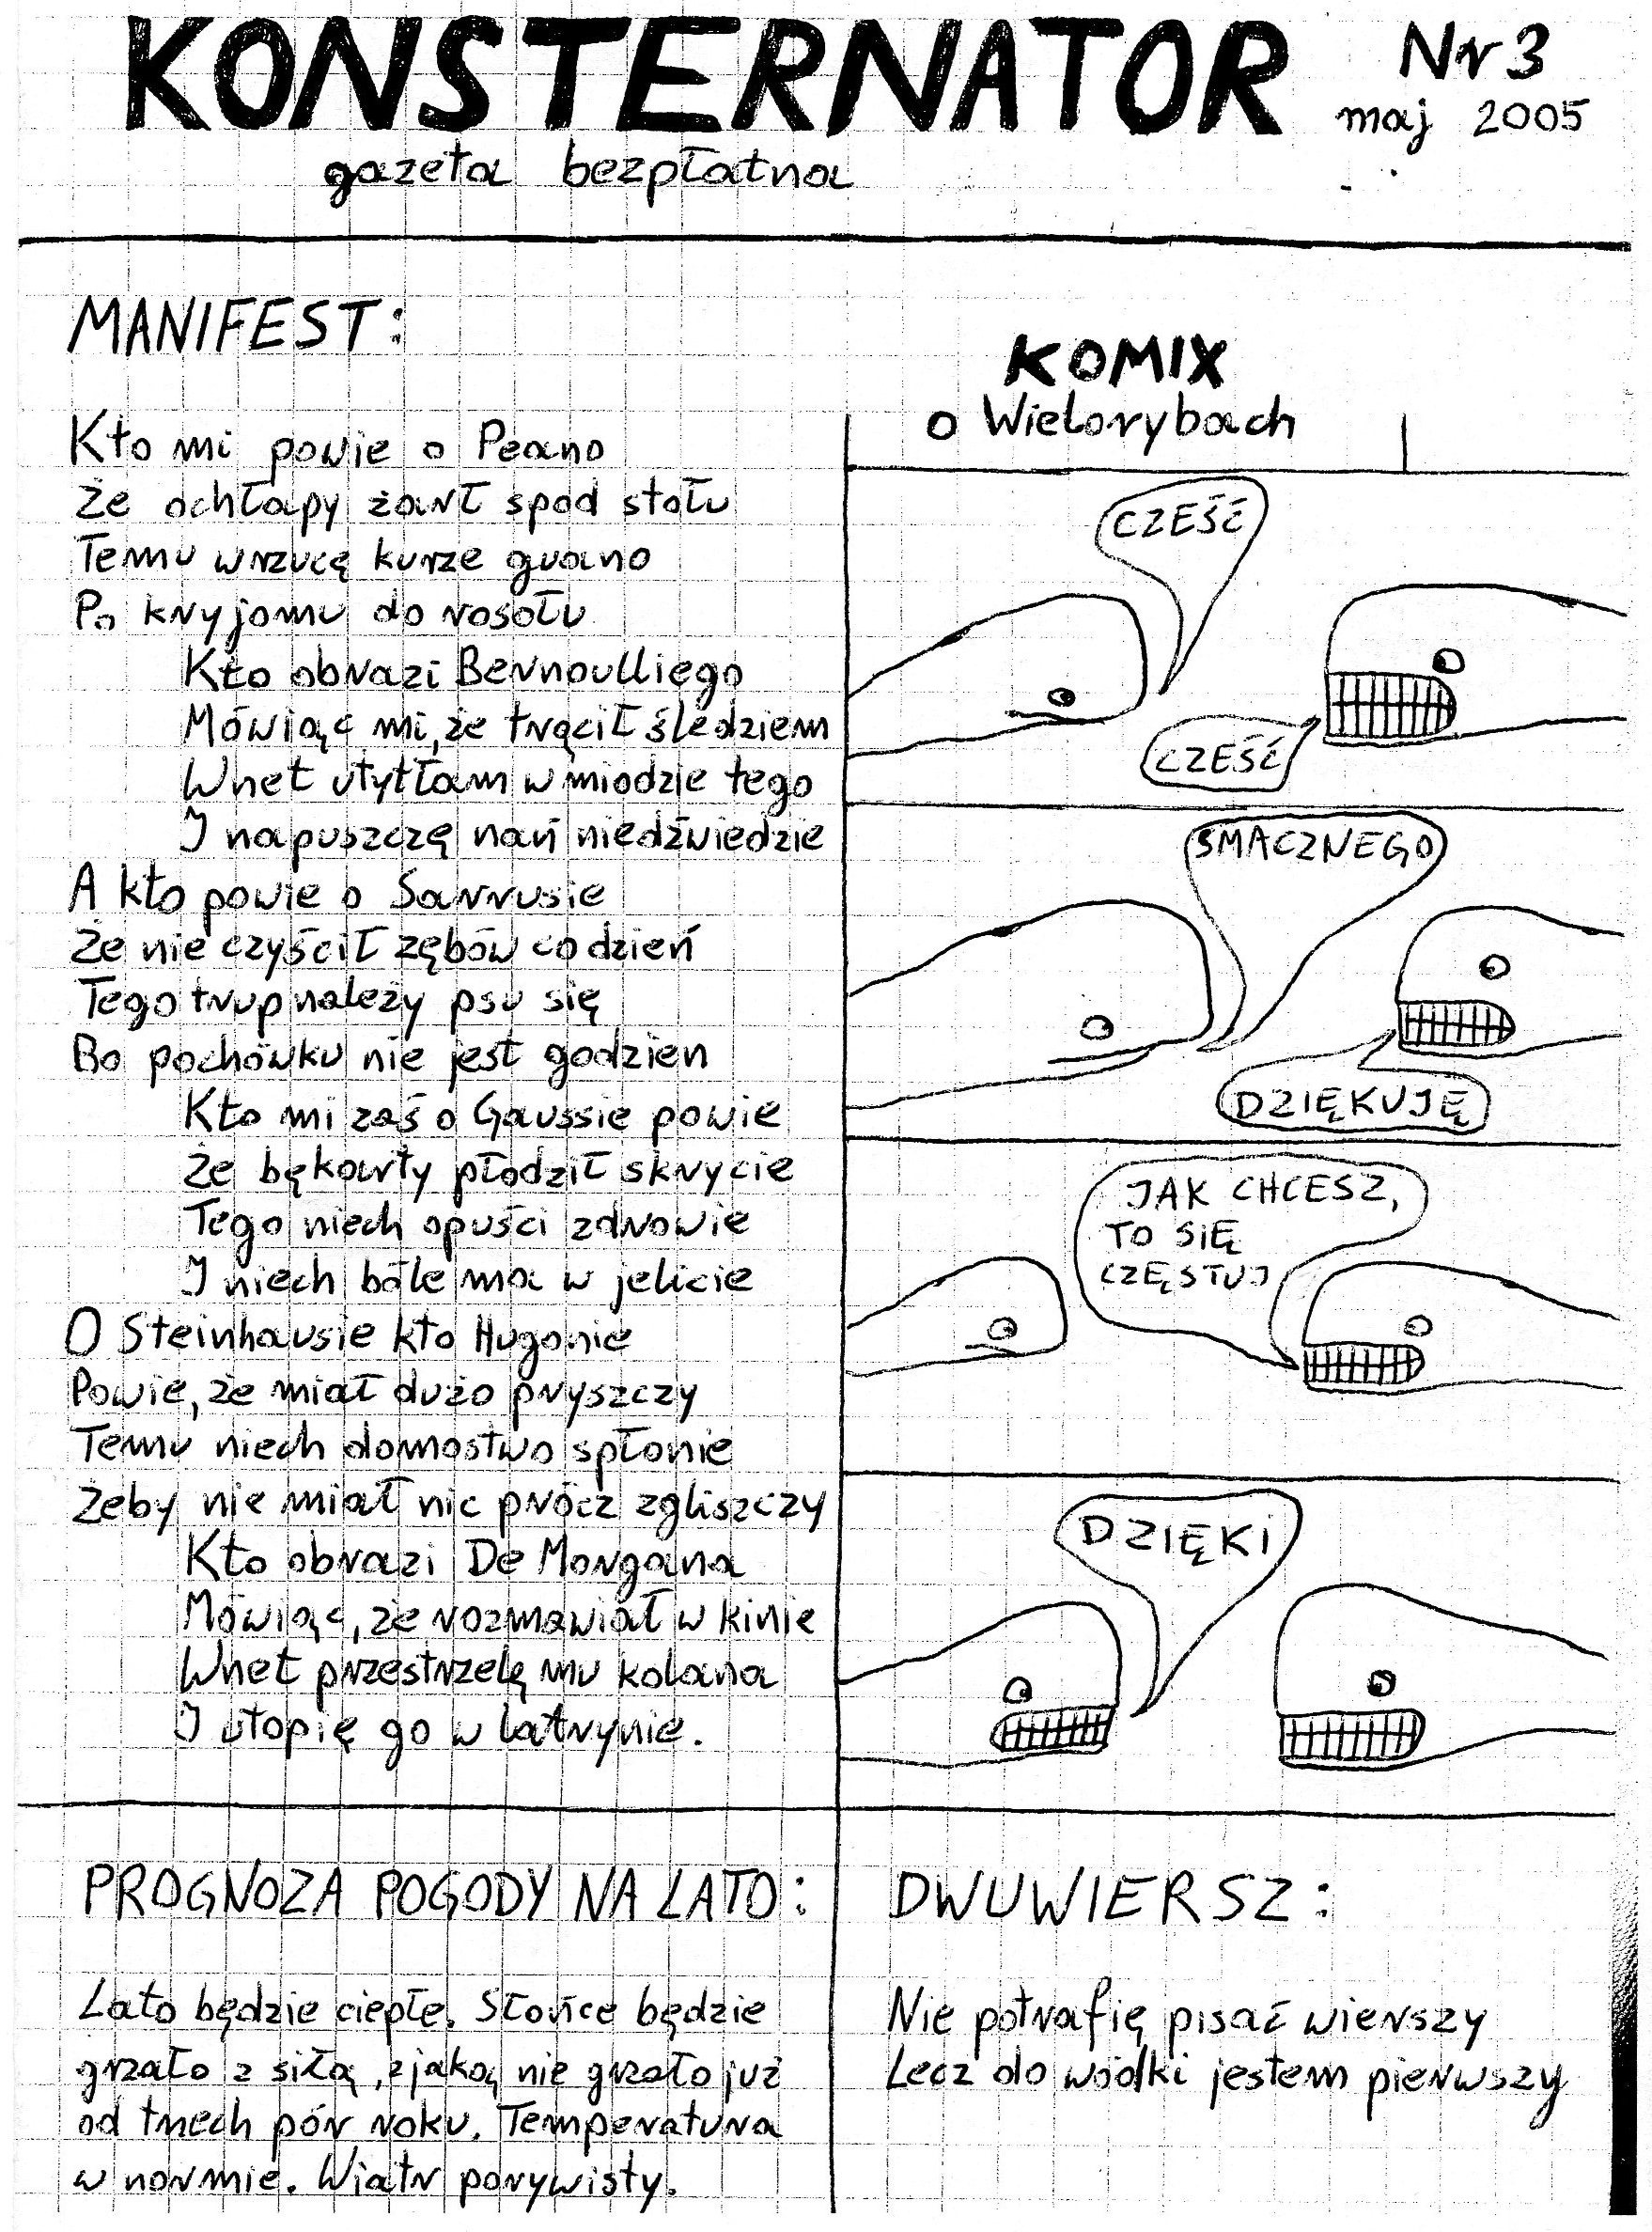 KONSTERNATOR
Nr 3
maj 2005
gazeta bezpłatna
MANIFEST:
Kto mi powie o Peano
Że ochłapy żarł spod stołu
Temu wrzucę kurze guano
Po kryjomu do rosołu
Kto obrazi Bernoulliego
Mówiąc mi, że trącił śledziem
Wnet utytłam w miodzie tego
I napuszczę nań niedźwiedzie
A kto powie o Sarrusie
Że nie czyścił zębów co dzień
Tego trup należy psu się
Bo pochówku nie jest godzien
Kto mi zaś o Gaussie powie
Że bękarty płodził skrycie
Tego niech opuści zdrowie
I niech bóle ma w jelicie
O Steinhausie kto Hugonie
Powie, że miał dużo pryszczy
Temu niech domostwo spłonie
Żeby nie miał nic prócz zgliszczy
Kto obrazi De Morgana
Mówiąc, że rozmawiał w kinie
Wnet przestrzelę mu kolana
I utopię go w latrynie.
KOMIX
o Wielorybach
CZEŚĆ
CZEŚĆ
SMACZNEGO
DZIĘKUJĘ
JAK CHCESZ,
TO SIĘ
CZĘSTUJ
DZIĘKI
PROGNOZA POGODY NA LATO:
Lato będzie ciepłe. Słońce będzie
grzało z siłą, z jaką nie grzało już
od trzech pór roku. Temperatura
w normie. Wiatr porywisty.
DWUWIERSZ:
Nie potrafię pisać wierszy
Lecz do wódki jestem pierwszy